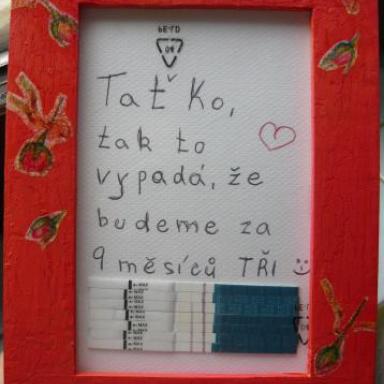 Taťko,
tak to
vypadá, že
budeme za
9 měsíců TŘI :)